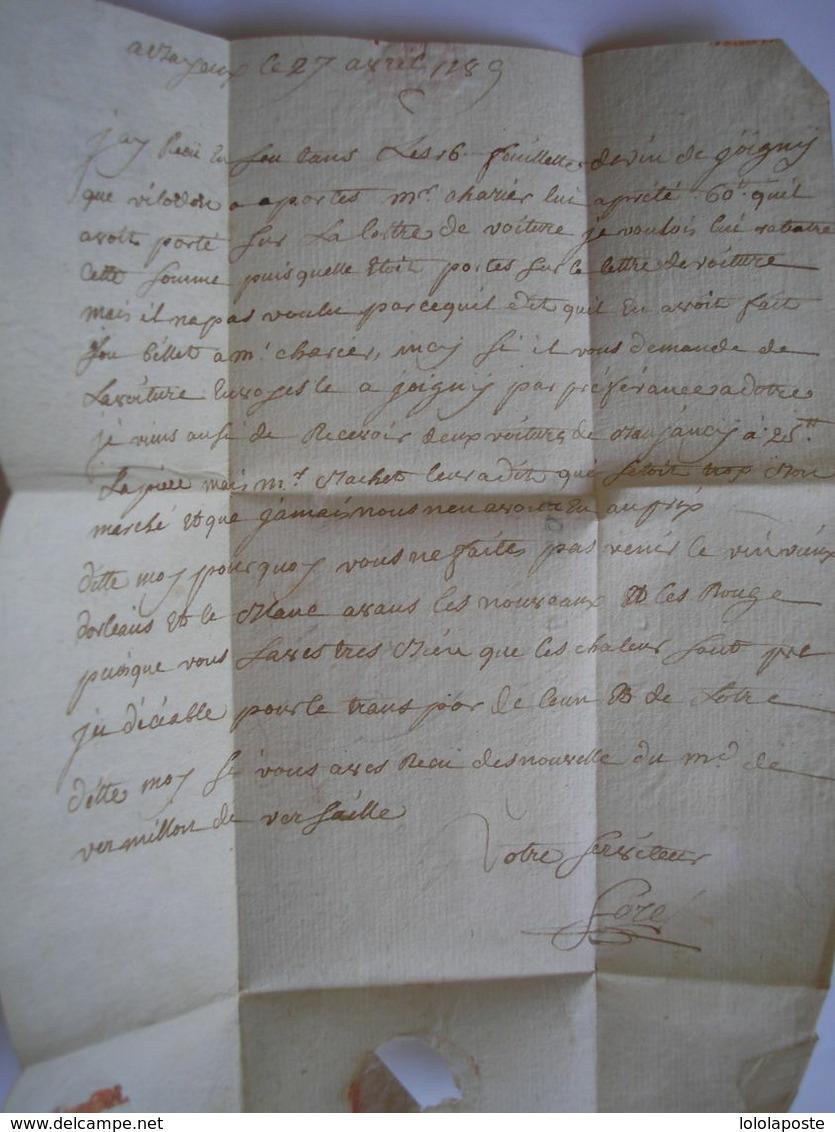 le 27 avril 1789
jay Recu En son tans Les 16 feuillette de vin de joigny
que a aportes mr. charier lui a prété 60# quil
avoit porté sur La lettre de voiture je voulois lui rabatre
cette somme puis quelle Etoit portes sur la lettre de voiture
mais il na pas voulu parcequil dit quil En avoit fait
son billet a mr. charier, si il vous demande de
La voiture Envoyes le a joigny par préférance a dotre
je viens ausi de Recevoir deux voitures de a 25#
La piece mais mr. Machet leur a dit qui setoit trop Bon
marché Et que jamais nous nen avons Eu au prix
ditte moy pourquoy vous ne faites pas venir le vin vieux
dorleans Et le Blanc avans les nouveaux Et les Rouge
puisque vous saves tres Bien que les chaleur sont pre
judiciable pour le trans por de leun Et de Lotre
ditte moy si vous aves Recu des nouvelle du md. de
vermillon de versaille
Votre serviteur
lololaposte